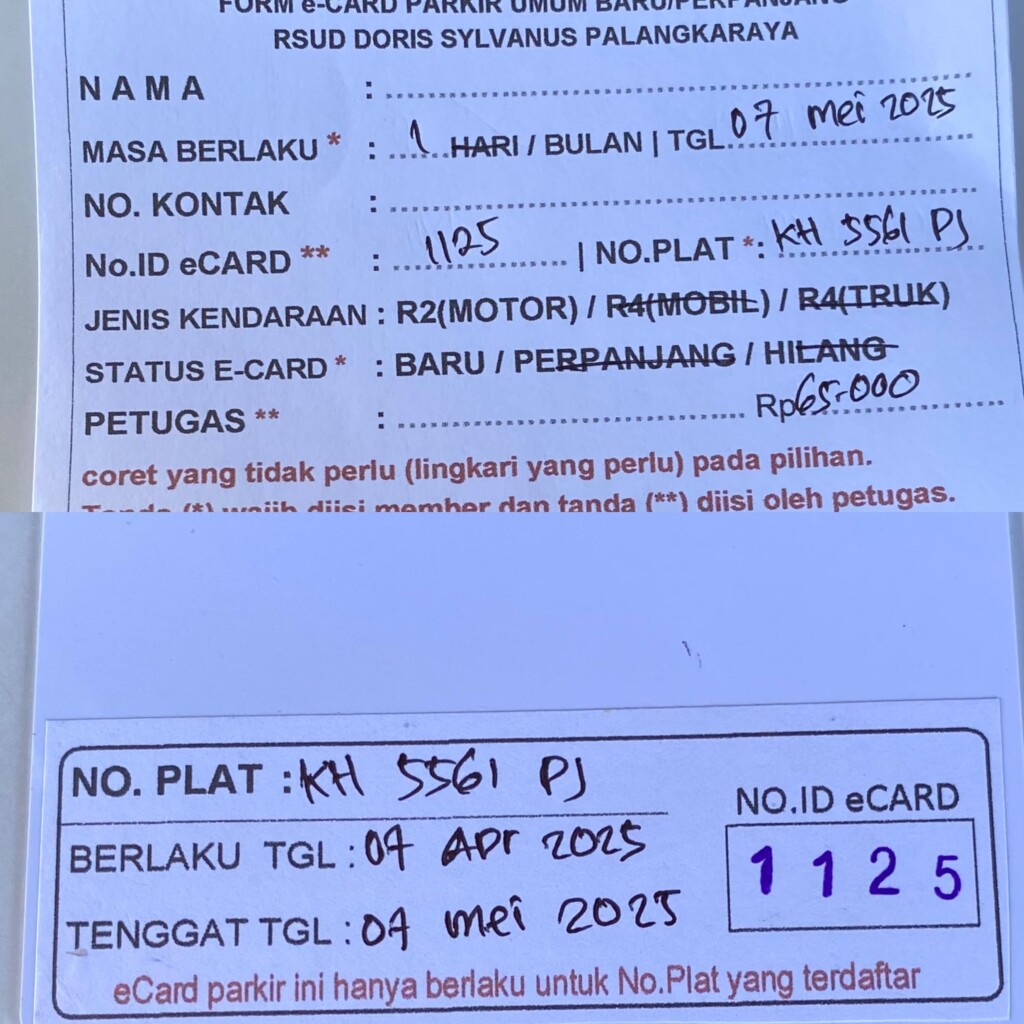 FORM e-CARD PARKIR UMUM BARU/PERPANJANG
RSUD DORIS SYLVANUS PALANGKARAYA
N A M A :
MASA BERLAKU * : 1 HARI / BULAN | TGL. 07 mei 2025
NO. KONTAK :
No.ID eCARD ** : 1125 | NO.PLAT *: KH 5561 PJ
JENIS KENDARAAN : R2(MOTOR) / R4(MOBIL) / R4(TRUK)
STATUS E-CARD * : BARU / PERPANJANG / HILANG
PETUGAS ** : Rp 65.000
coret yang tidak perlu (lingkari yang perlu) pada pilihan.
Tanda (*) wajib diisi member dan tanda (**) diisi oleh petugas.
NO. PLAT : KH 5561 PJ
BERLAKU TGL : 07 Apr 2025
TENGGAT TGL : 07 mei 2025
NO.ID eCARD
1 1 2 5
eCard parkir ini hanya berlaku untuk No.Plat yang terdaftar